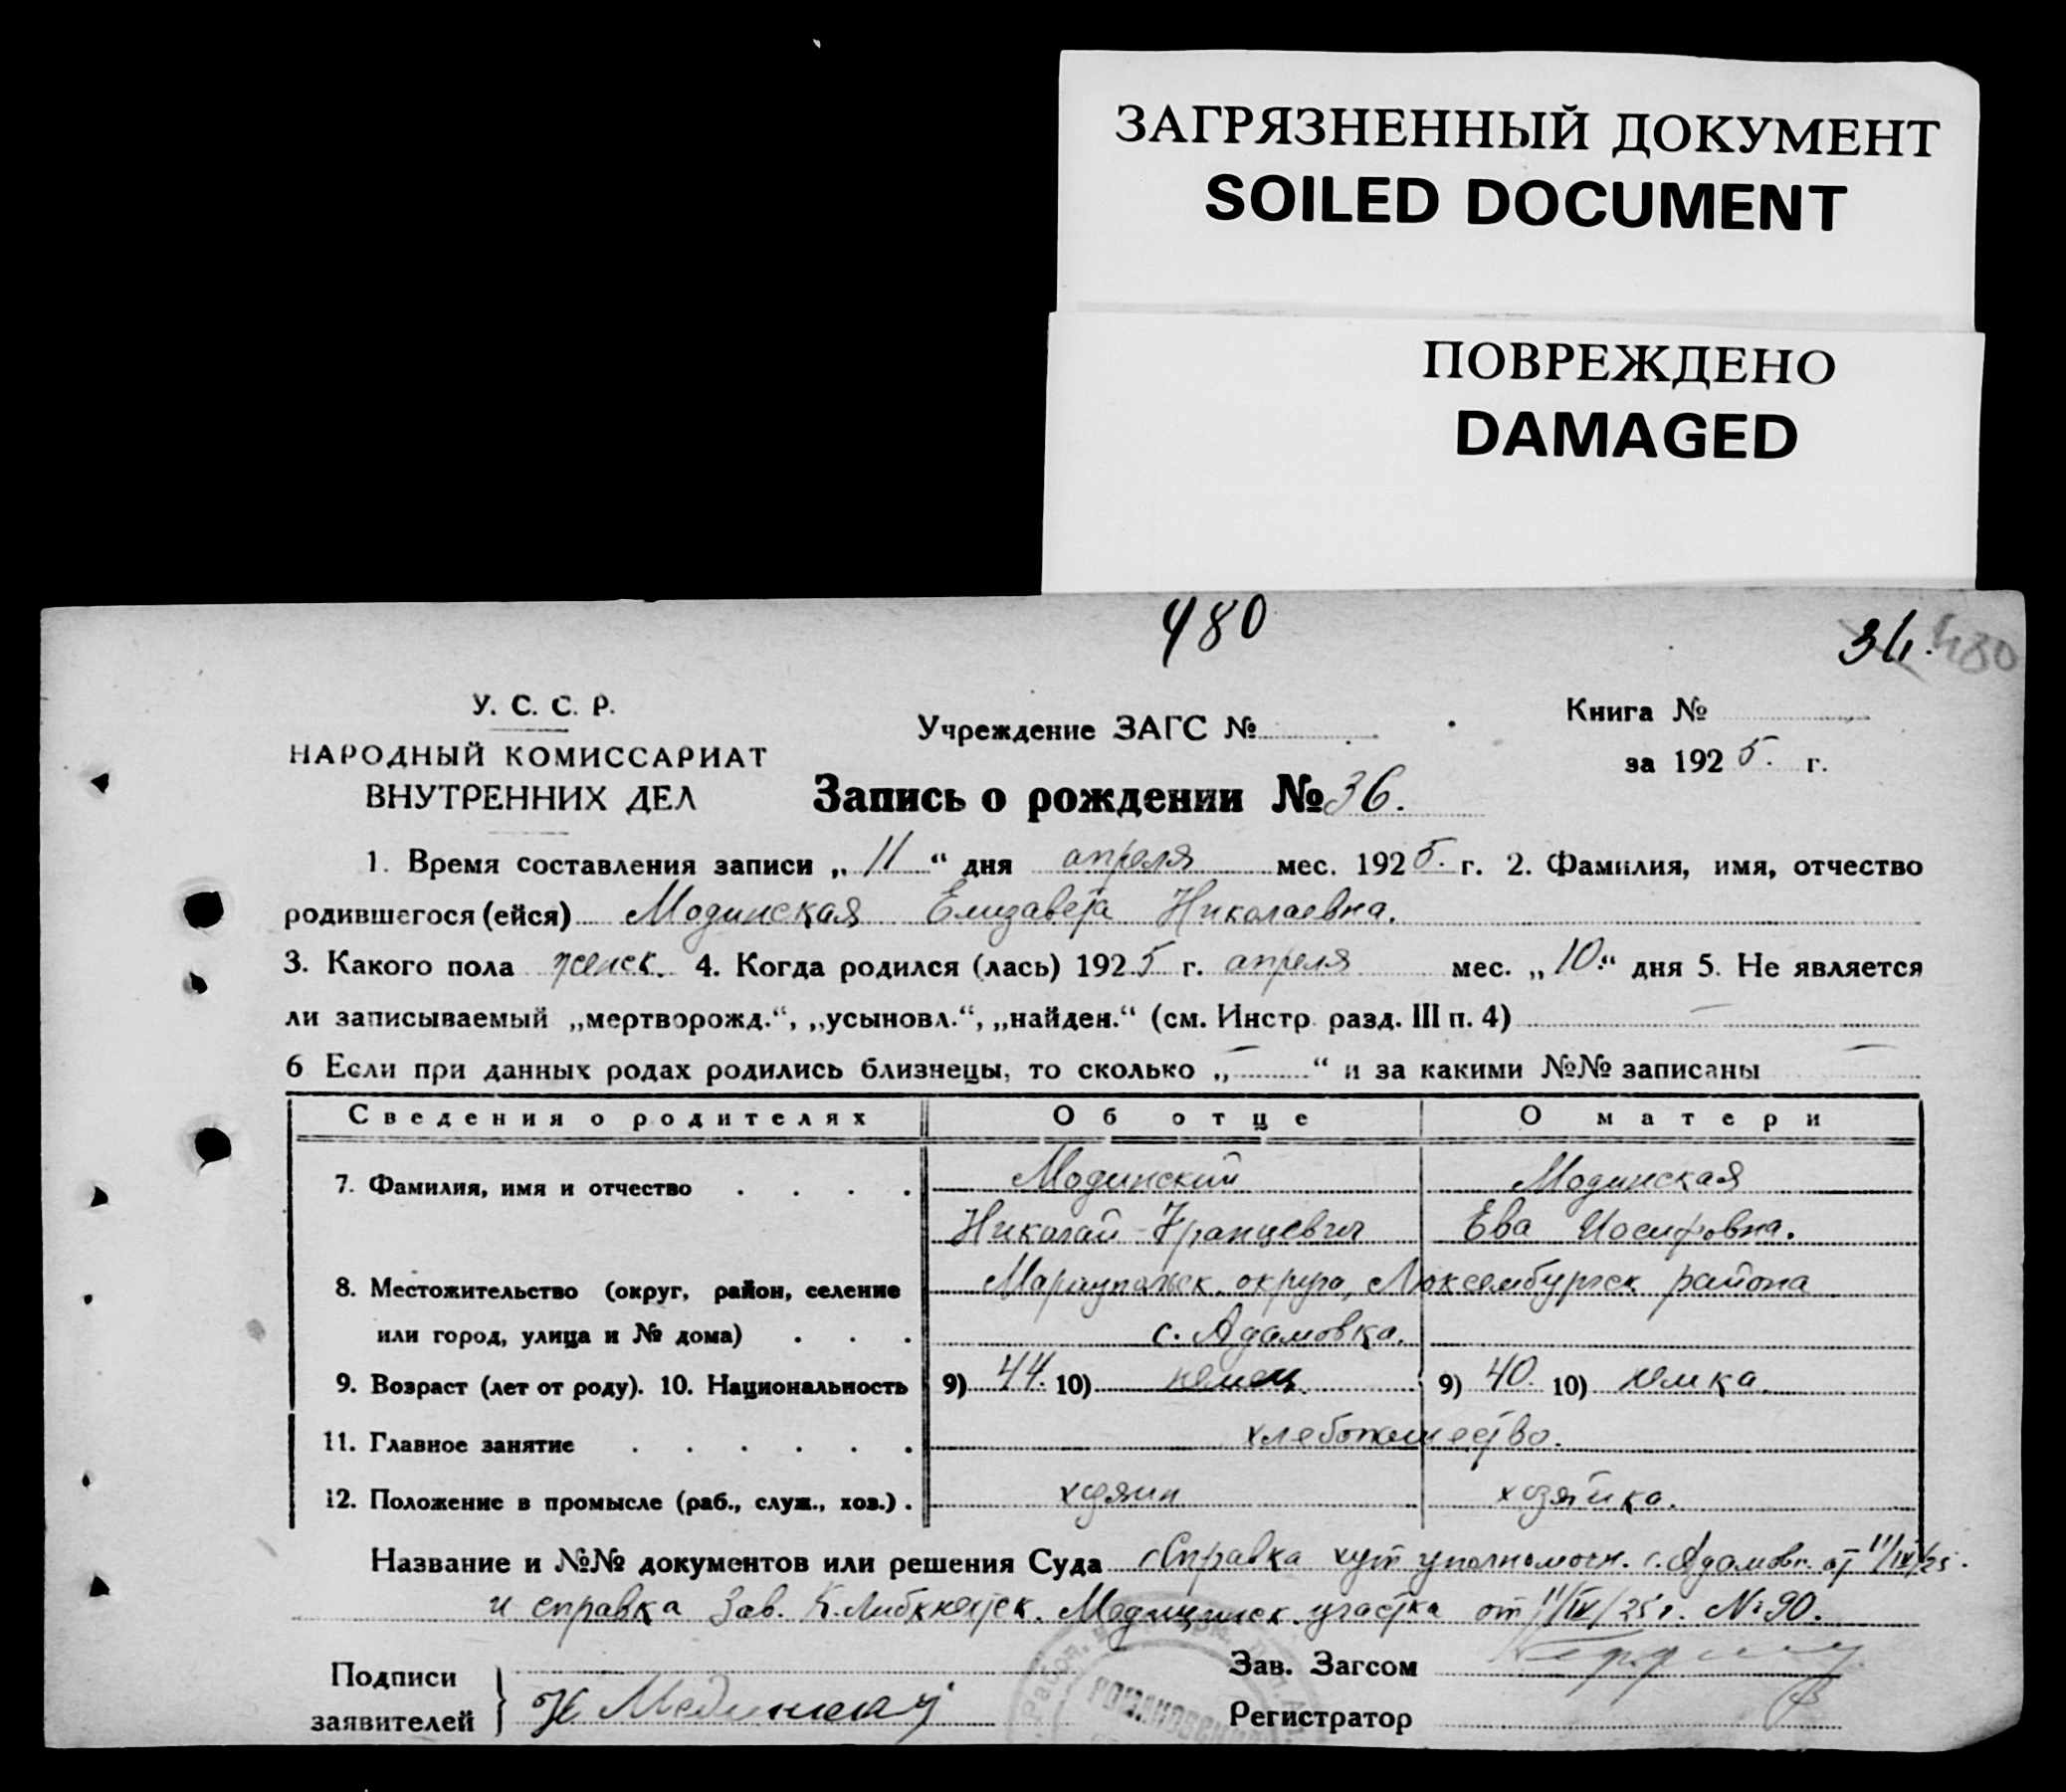 ЗАГРЯЗНЕННЫЙ ДОКУМЕНТ
SOILED DOCUMENT
ПОВРЕЖДЕНО
DAMAGED
480
34. 480
У. С. С. Р.
НАРОДНЫЙ КОМИССАРИАТ
ВНУТРЕННИХ ДЕЛ
Учреждение ЗАГС №
Книга №
за 1925. г.
Запись о рождении № 36.
1. Время составления записи „11“ дня апреля мес. 1925. г. 2. Фамилия, имя, отчество
родившегося (ейся) Модинская Елизавета Николаевна.
3. Какого пола женск. 4. Когда родился (лась) 1925 г. апреля мес. „10.“ дня 5. Не является
ли записываемый „мертворожд.“, „усыновл.“, „найден.“ (см. Инстр. разд. III п. 4) —
6 Если при данных родах родились близнецы, то сколько „—“ и за какими №№ записаны —
Сведения о родителях Об отце О матери
7. Фамилия, имя и отчество . . . . Модинский Модинская
Николай Францевич Ева Иосифовна.
8. Местожительство (округ, район, селение Мариупольск. округа, Люксембургск района
или город, улица и № дома) . . . с. Адамовка.
9. Возраст (лет от роду). 10. Национальность 9) 44. 10) немец. 9) 40. 10) немка.
11. Главное занятие . . . . . . хлебопашество.
12. Положение в промысле (раб., служ., хоз.) . хозяин хозяйка.
Название и №№ документов или решения Суда Справка уполномоч. с. Адамовк. от 11/IV/25.
и справка Зав. К. Либкнехтск. Медицинск. участка от 11/IV/25 г. № 90.
Подписи
заявителей } Н Мединский
Зав. Загсом
Регистратор